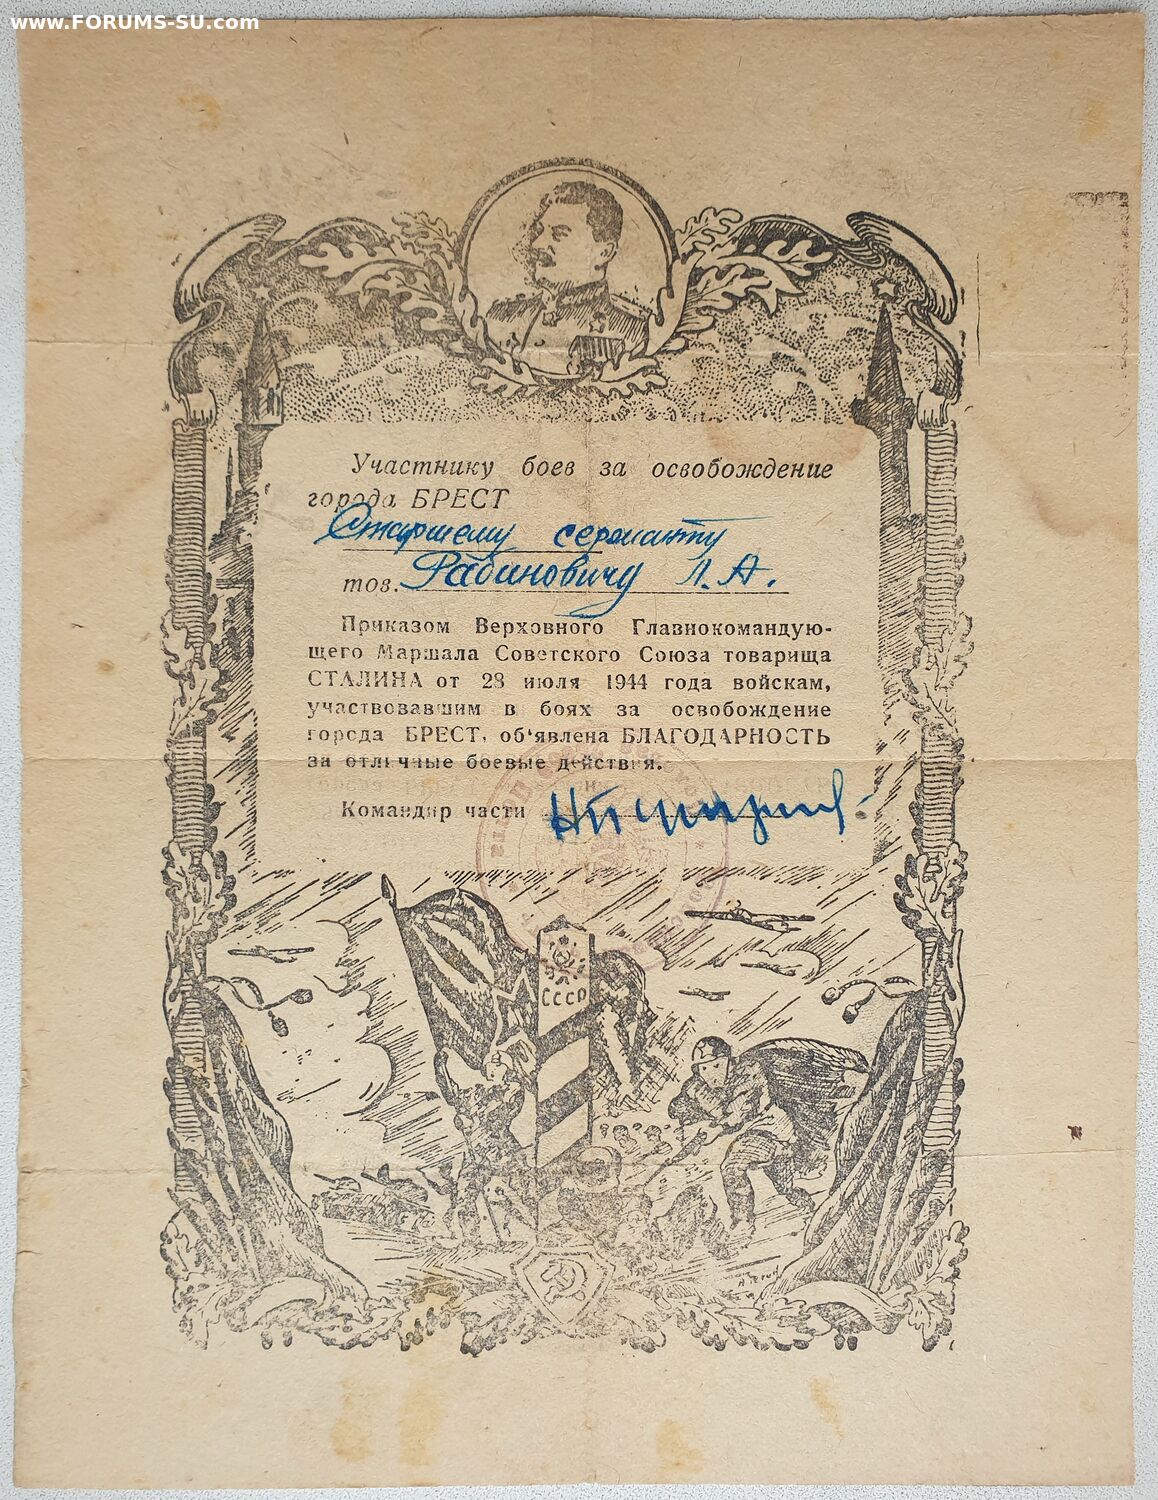 www.FORUMS-SU.com
Участнику боев за освобождение
города БРЕСТ
Старшему сержанту
тов. Рабиновичу Л. А.
Приказом Верховного Главнокомандую-
щего Маршала Советского Союза товарища
СТАЛИНА от 28 июля 1944 года войскам,
участвовавшим в боях за освобождение
города БРЕСТ, об‘явлена БЛАГОДАРНОСТЬ
за отличные боевые действия.
Командир части
СССР